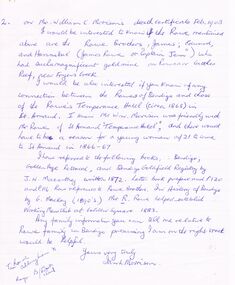 2. on Mr William E Morrison's death certificate Feb. 1903
I would be interested to know if the Rowe mentioned
above are the Rowe Brothers, James, Edward,
and Hannibal (James Rowe or Captain Jem) who
had such a magnificent goldmine on
Reef, near Eaglehawk.
I would be also interested if you know if any
connection between the Rowes of Bendigo and those
of the Rowe's Temperance Hotel (circa 1866) in
St Arnaud. I know Mr Wm Morrison was friendly with
Mr Rowe of St Arnaud "Temperance Hotel", and there would
have been a reason for a young woman of 21 to come
to St Arnaud in 1866-67
I have referred to the following books, Bendigo,
Golden Age Released, and Bendigo Goldfield Registry by
J. N. Macartney written 1872. Latter book pages 120
and 126 has reference to Rowe Brothers. In History of Bendigo
by G. Mackay (1890's) The R. Rowe helped establish
Working Men's Club at Golden Square 1883.
Any family information you can tell me relative to
Rowe family in Bendigo presuming I am on the right track
would be helpful.
Yours very truly
Morrison.